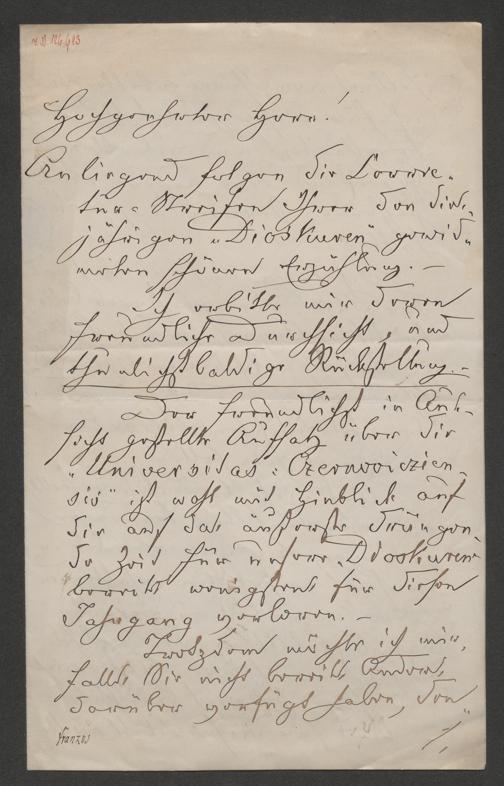 H.I.N. 126.483
Hochgeehrter Herr!
Anliegend folgen die Correc-
tur-Streifen Ihrer den dies-
jährigen „Dioskuren“ gewid-
meten schönen Erzählung. –
Ich erbitte mir deren
freundliche Durchsicht, und
thunlichst baldige Rückstellung. –
Der freundlichst in Aus-
sicht gestellte Aufsatz über die
„Universitas Czernowiczien-
sis“ ist wohl mit Hinblick auf
die auf das äußerste drängen-
de Zeit für unsere „Dioskuren“
bereits wenigstens für diesen
Jahrgang verloren. –
Trotzdem möchte ich mir,
falls Sie nicht bereits anders
darüber verfügt haben, den
Franzos